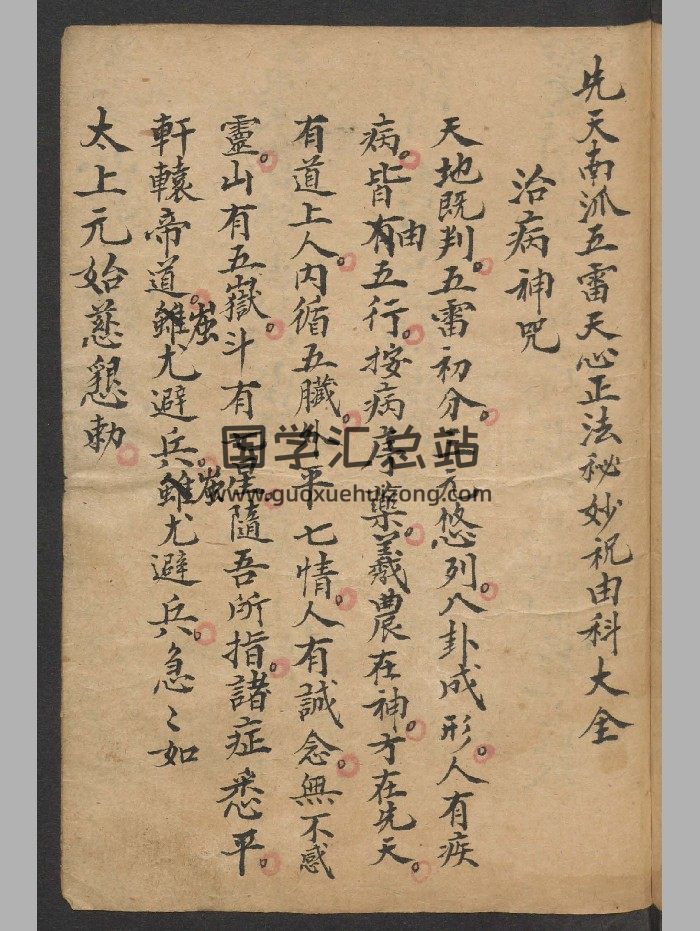 先天南派五雷天心正法秘妙祝由科大全
治病神咒
天地既判。五雷初分。五方悠列。八卦成形。人有疾
病。皆有由五行。按病序藥。羲農在神。方在先天。
有道上人。內循五臟。外平七情。人有誠念。無不感
靈。山有五嶽。斗有星。隨吾所指。諸症悉平。
軒轅帝道。蚩尤避兵。蚩尤避兵。急〻如
太上元始慈懇勅。
国学汇总站
www.guoxuehuizong.com